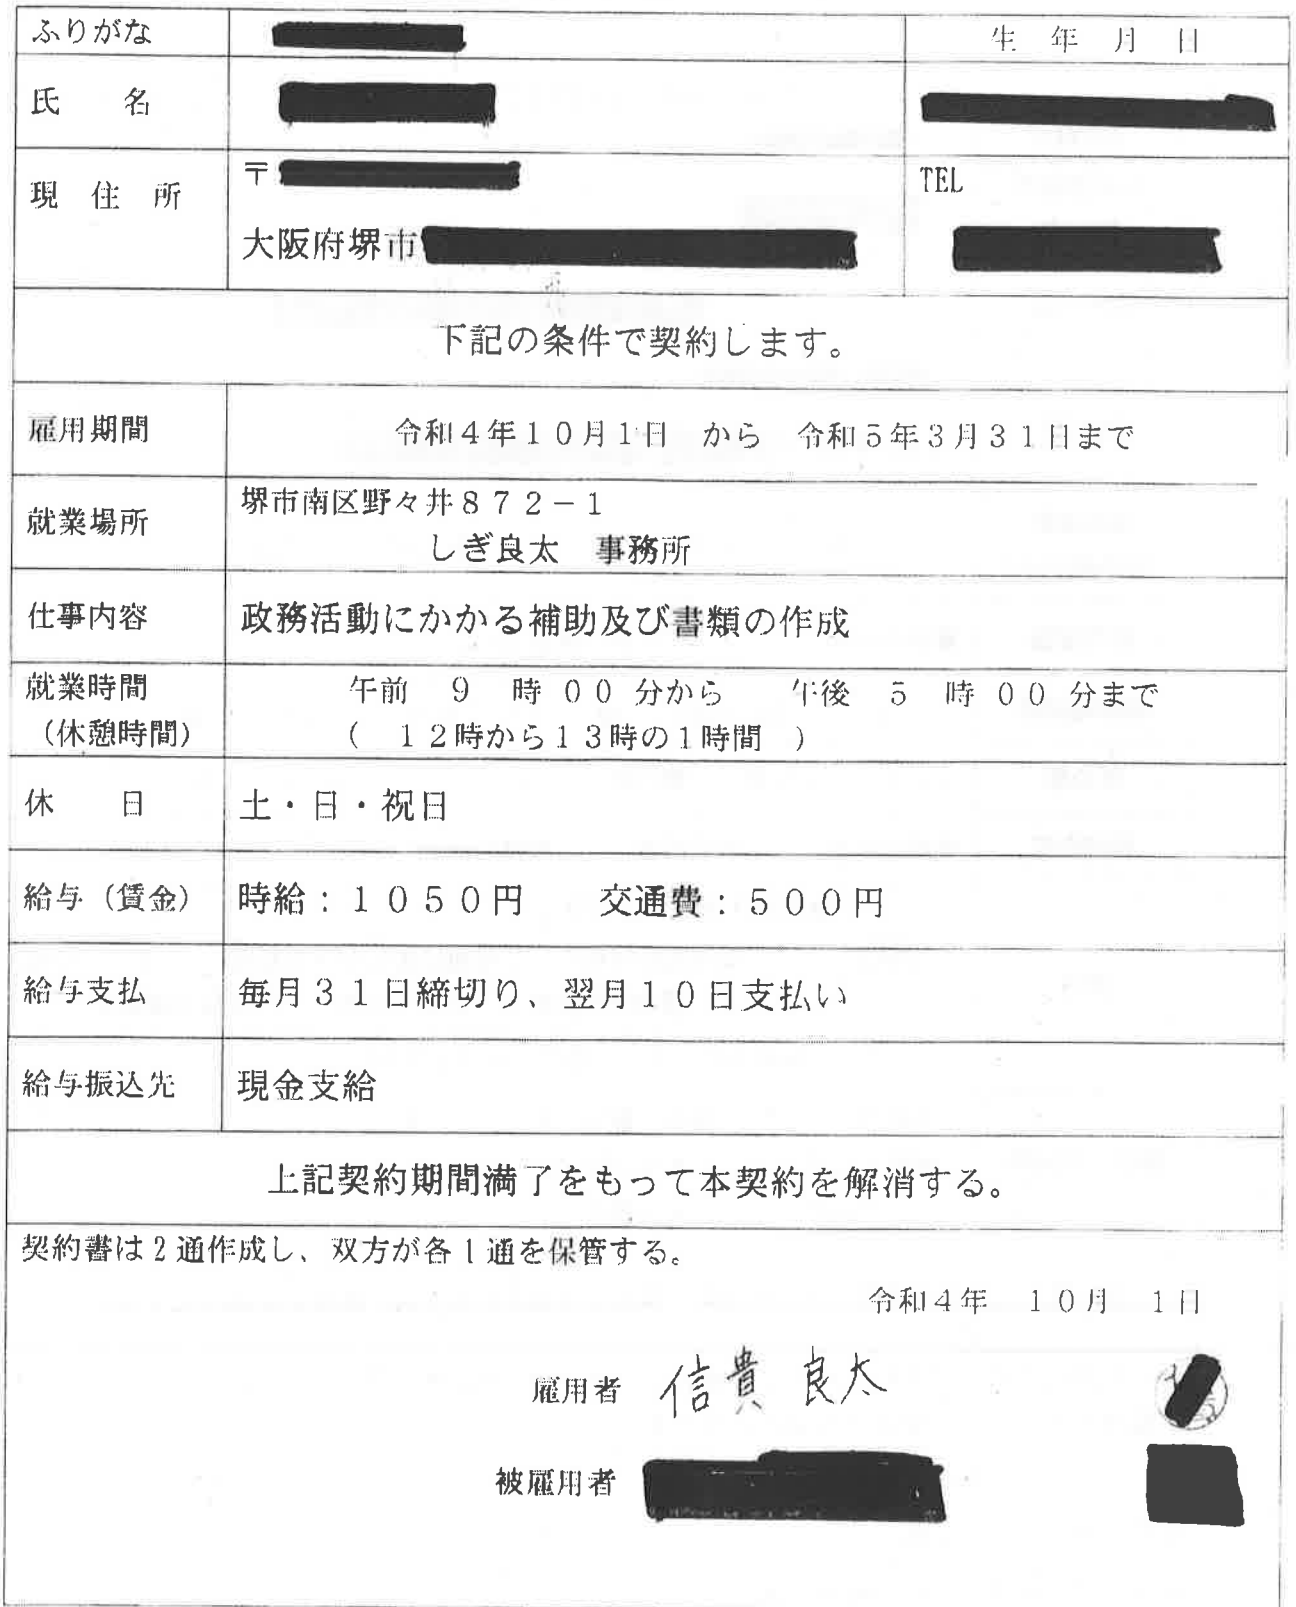 ふりがな 生 年 月 日
氏 名
現 住 所 〒 TEL
大阪府堺市
下記の条件で契約します。
雇用期間 令和4年10月1日 から 令和5年3月31日まで
就業場所 堺市南区野々井872-1
しぎ良太 事務所
仕事内容 政務活動にかかる補助及び書類の作成
就業時間 午前 9 時 00 分から 午後 5 時 00 分まで
(休憩時間) ( 12時から13時の1時間 )
休 日 土・日・祝日
給与(賃金) 時給:1050円 交通費:500円
給与支払 毎月31日締切り、翌月10日支払い
給与振込先 現金支給
上記契約期間満了をもって本契約を解消する。
契約書は2通作成し、双方が各1通を保管する。
令和4年 10月 1日
雇用者 信貴 良太
被雇用者